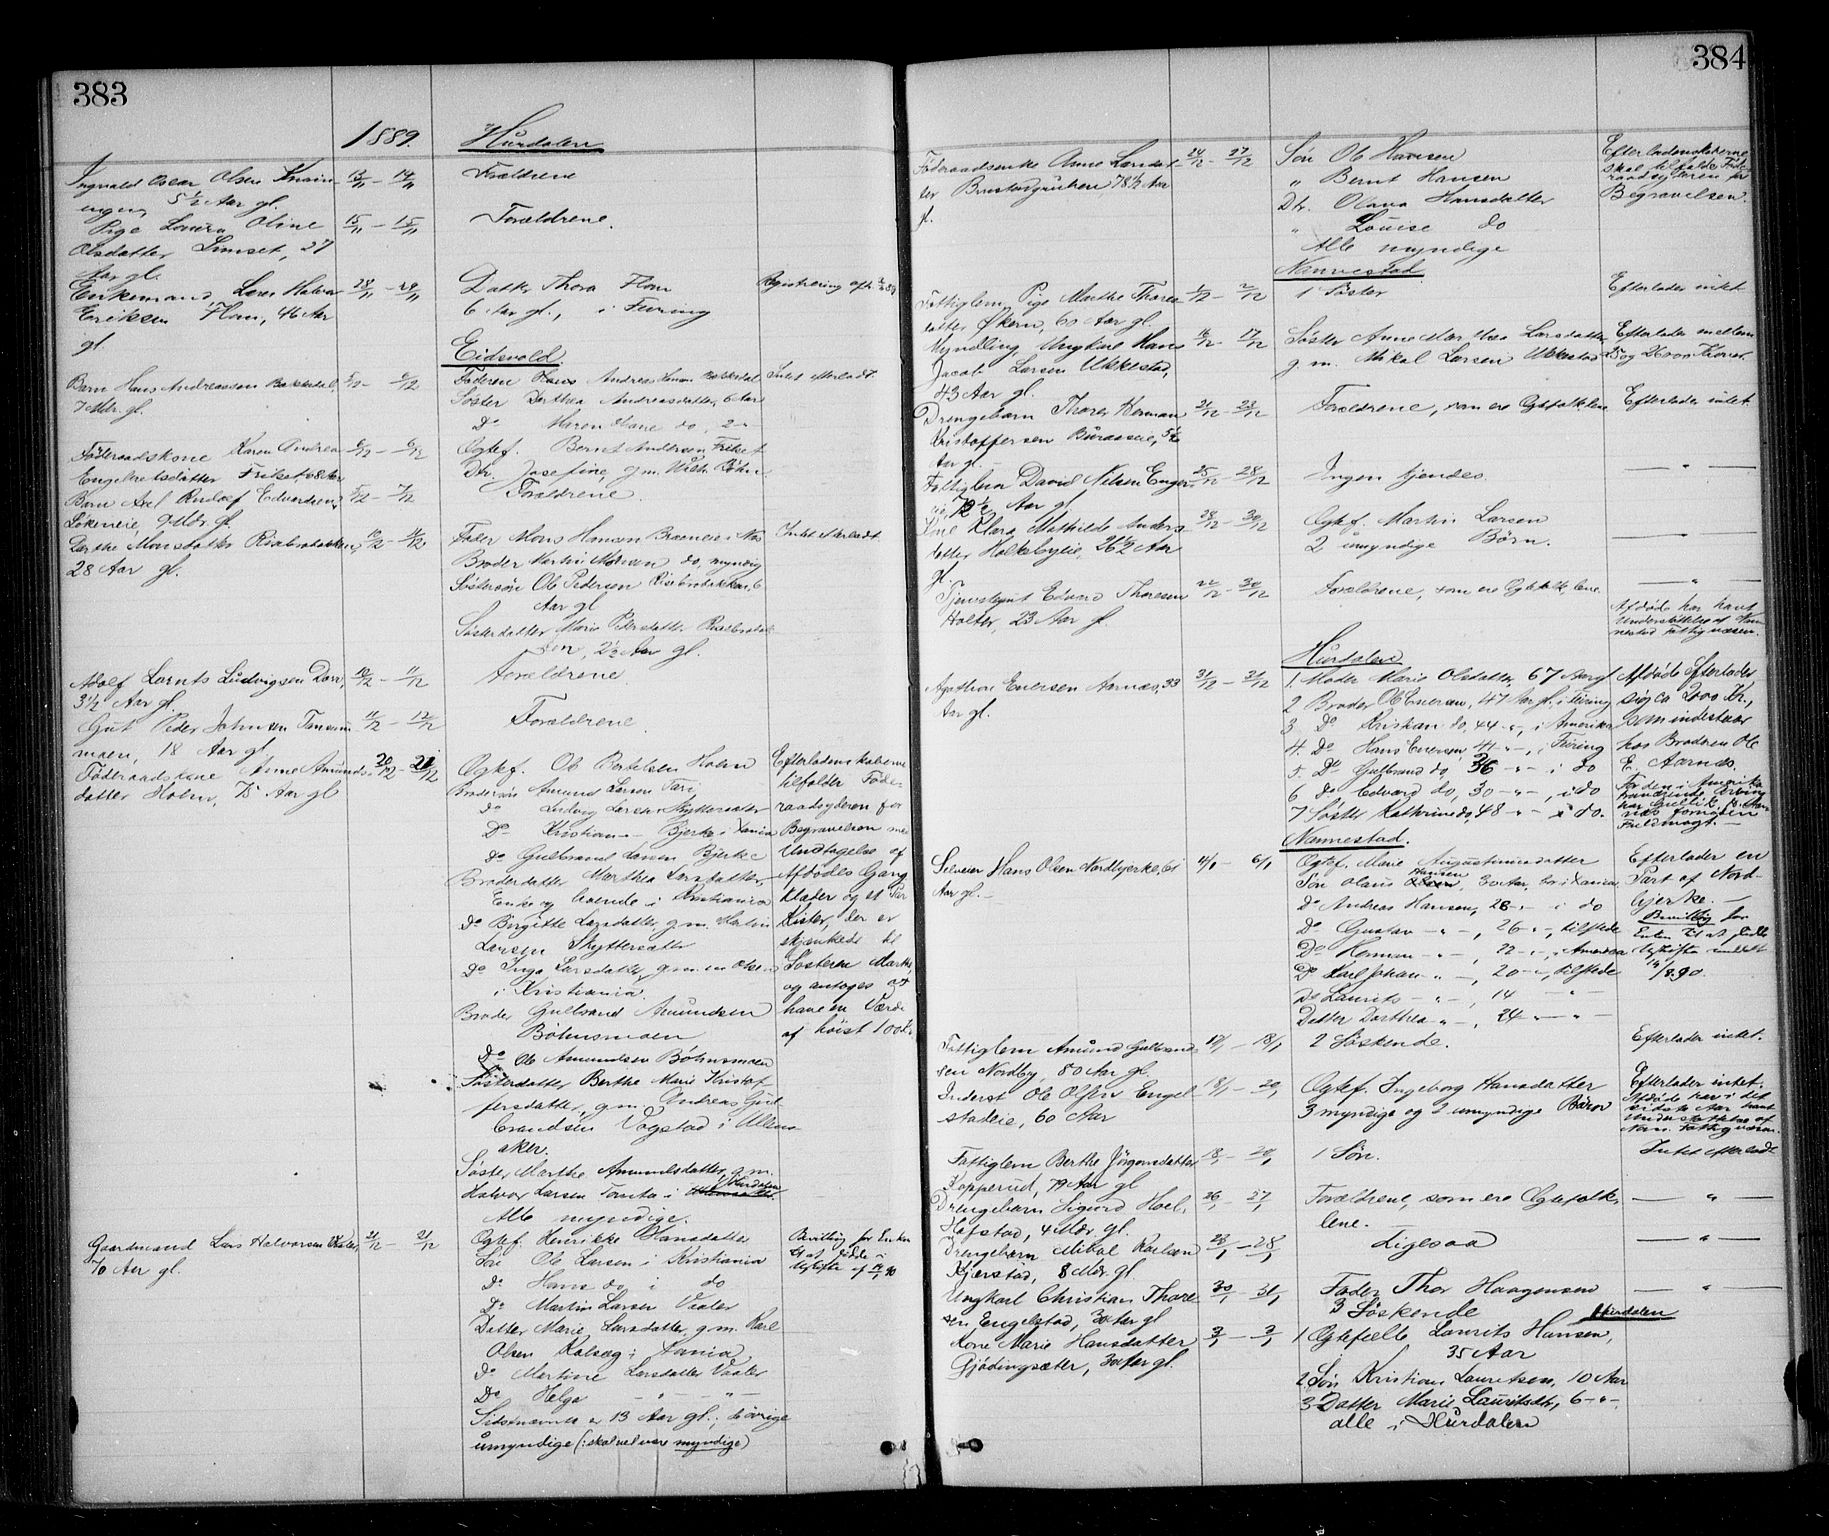 383
1889.
Hurdalen
Ingvald Oscar Olsen
5½ Aar gl.
13/11 — 14/11
Forældrene
Pige Laura Oline
Olsdatter Limset, 27
Aar gl.
15/11 — 15/11
Forældrene.
Enkemand Lars Halvor
Eriksen Flom, 46 Aar
gl.
28/11 — 29/11
Datter Thora Flom
6 Aar gl., i Feiring
Registrering afh.
Eidsvold.
Barn Hans Andreassen Bakkedal,
7 Mdr. gl.
5/12 — 6/12
Faderen Hans Andreas Hansen Bakkedal
Søster Dorthea Andreasdatter, 6 Aar
Do Maren Oline do, 2 "
Intet efterladt.
Føderaadskone Karen Andrea
Engebretsdatter Frilset, 68 Aar
6/12 — 6/12
Ogtef. Bernt Andersen Frilset
Dtr. Josefine, g.m. Wilh. Bøhn
Barn Axel Rudolf Edvardsen
Løkeneie, 9 Mdr. gl.
5/12 — 7/12
Forældrene.
Dorthe Monsdatter Risebrobakken,
28 Aar gl.
10/12 — 11/12
Fader Mons Hansen Braeneie i Næs
Broder Martin Monsen do, myndig
Søstersøn Ole Pedersen Risebrobakken, 6
Aar gl
Søsterdatter Marie Pedersdatter Risebrobak
ken, 2½ Aar gl.
Intet efterladt.
Adolf Lornts Ludvigsen Dorr,
3½ Aar gl.
10/12 — 11/12
Forældrene.
Gut Peder Johnsen Tansum
moen, 18 Aar gl.
11/12 — 12/12
Forældrene
Føderaadskone Anne Amunds
datter Holm, 75 Aar gl
20/12 — 21/12
Ogtef. Ole Bertelsen Holm
Brodersøn Amund Larsen Tari
do Ludvig Larsen Skyttersæter
Do Kristian — Bjerke i Xania
do Gulbrand Larsen Bjerke
Broderdatter Marthea Larsdatter,
Enke og boende i Kristiania
do Birgitte Larsdatter, g.m. Martin
Larsen Skyttersæter
do Inga Larsdatter, g.m. en Olsen
i Kristiania.
Broder Gulbrand Amundsen
Bøhnsmoen
Do Ole Amundsen Bøhnsmoen
Søsterdatter Berthe Marie Kristof
fersdatter, g.m. Andreas Gul
brandsen Vogstad i Ullens
aker.
Søster Marthe Amundsdatter, g.m.
Halvor Larsen Tomta i Hurdalen
Alle myndige.
Efterladenskaberne
tilfalder Føde-
raadsyderen for
Begravelsen med
Undtagelse af
Afdødes Gang
klæder og et Par
Kister, der er
skjænkede til
Søsteren Marthe
og antages at
have en Værdi
af høist 100 Kr.
Gaardmand Lars Halvorsen Vaaler,
70 Aar gl.
21/12 — 21/12
Ogtef. Henrikke Hansdatter
Søn Ole Larsen i Kristiania
do Hans do i do
Do Martin Larsen Vaaler
Datter Marie Larsdatter, g.m. Karl
Olsen Kolseg i Xania
do Martine Larsdatter Vaaler
Do Helga — " — " —
Sidstnævnte er 13 Aar gl., de øvrige
umyndige (: skal vel være myndige)
Bevilling for Enken
til at sidde i
Uskifte af
384
Føderaadsenke Anne Larsdat
ter Brustadgruben, 78½ Aar
gl.
24/12 — 27/12
Søn Ole Hansen
" Bernt Hansen
Dtr. Olava Hansdatter
" Louise do
Alle myndige
Efterladenskaberne
skal tilfalde Føde
raadsyderen for
Begravelsen.
Nannestad
Fattiglem Pige Marthe Thores
datter Økern, 60 Aar gl.
1/12 — 2/12
1 Søster
Efterlader intet.
Myndling, Ungkarl Hans
Jacob Larsen Ukkestad,
43 Aar gl.
16/12 — 17/12
Søster Anne Mar. Thea Larsdatter
g.m. Mikal Larsen Ukkestad
Efterlader mellem
25 og 2600 Kroner.
Drengebarn Thorer Herman
Kristoffersen Buraaseie, 5½
Aar gl.
21/12 — 23/12
Forældrene, som ere Ogtefolk, lene
Efterlader intet.
Fattiglem David Nilsen Enger
eie, 72½ Aar gl
25/12 — 28/12
Ingen kjendes.
— " —
Kone Klara Mathilde Anders
datter Holksbyeie, 26½ Aar
gl.
28/12 — 30/12
Ogtef. Martin Larsen
2 umyndige Børn.
— " —
Tjenestegut Edvard Thoresen
Holter, 23 Aar gl.
22/12 — 30/12
Forældrene, som ere Ogtefolk, lene
— " —
Afdøde har havt
Understøttelse af Nan-
nestad Fattigvæsen.
Hurdalen
Agathon Enersen Aarnæs, 33
Aar gl.
31/12 — 31/12
1 Moder Marie Olsdatter 67 Aar gl
2 Broder Ole Enersen, 47 Aar gl. i Feiring
3 Do Kristian do, 44 - " -, i Amerika
4. Do Hans Enersen, 41 - " -, i Feiring
5. Do Gulbrand do, 36 - " - i do
6 Do Edvard do, 30 - " -, i do
7 Søster Kathrine do, 48 - " - i do.
Afdøde efterlader
sig ca 2000 Kr.,
som indestaar
hos Broderen Ole
E. Aarnæs.
For den i Amerika
værende Arving
har Gullik P. Aar
næs fornøden
Fuldmagt. —
Nannestad.
Selveier Hans Olsen Nordbjerke, 61
Aar gl. —
4/1 — 6/1
Ogtef. Marie Augustinusdatter
Søn Olaus Olsen Hansen, 30 Aar, bor i Xania
do Andreas Hansen, 28 - " - i do
Do Gustav - " -, 26 - " -, tilstede
Do Herman - " -, 22 - " -, i Amerika
Do Karl Johan - " -, 20 - " -, tilstede
Do Laurits - " -, 14 - " -
Datter Dorthea - " -, 24 - " -
Efterlader en
Part af Nord-
bjerke. —
Bevilling for
Enken til at sidde
i Uskifte meddelt
14/8 90.
Fattiglem Amund Gulbrand
sen Nordby 80 Aar gl.
17/1 — 18/1
2 Søskende.
Efterlader intet.
Inderst Ole Olsen Engel
stadeie, 60 Aar
18/1 — 20/1
Ogtef. Ingeborg Hansdatter
3 myndige og 2 umyndige Børn
Efterlader intet.
Afdøde har i det
sidste Aar havt
Understøttelse af
Nan. Fattigvæsen.
Fattiglem Berthe Jørgensdatter
Kopperud, 79 Aar gl
18/1 — 20/1
1 Søn.
Intet efterladt
Drengebarn Sigurd Hoel,
Høfstad, 4 Mdr. gl.
26/1 — 27/1
Forældrene, som ere Ogtefolk,
lene. —
— " —
Drengebarn Mikal Karlsen
Kjærstad, 8 Mdr. gl.
28/1 — 28/1
Ligesaa
— " —
Ungkarl Christian Thore
sen Engelstad, 30 Aar gl
30/1 — 31/1
Fader Thor Haagensen
3 Søskende
— " —
Hurdalen
Kone Marie Hansdatter
Gjødingsæter, 30 Aar gl.
3/1 — 3/1
1 Ogtefælle Laurits Hansen,
35 Aar
2 Søn Kristian Lauritsen, 10 Aar
3 Datter Marie Lauritsdtr, 6 - " -
alle i Hurdalen